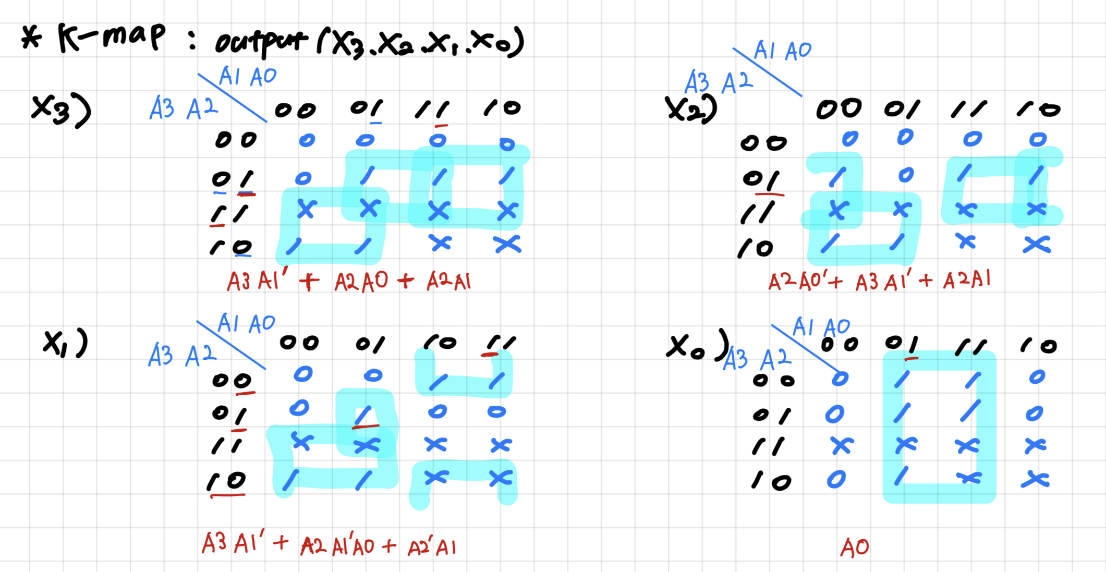 * K-map : output (X3.X2.X1.X0)
X3)
A1 A0
A3 A2
00 01 11 10
00 0 0 0 0
01 0 1 1 1
11 X X X X
10 1 1 X X
A3 A1' + A2 A0 + A2 A1
X2)
A1 A0
A3 A2
00 01 11 10
00 0 0 0 0
01 1 0 1 1
11 X X X X
10 1 1 X X
A2 A0' + A3 A1' + A2 A1
X1)
A1 A0
A3 A2
00 01 10 11
00 0 0 1 1
01 0 1 0 0
11 X X X X
10 1 1 X X
A3 A1' + A2 A1' A0 + A2' A1
X0)
A1 A0
A3 A2
00 01 11 10
00 0 1 1 0
01 0 1 1 0
11 X X X X
10 0 1 X X
A0